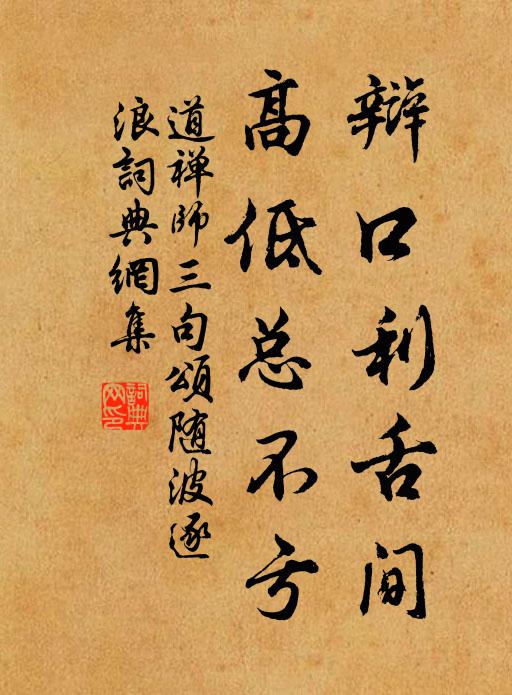 辩口利舌间
高低总不亏
道禅师三句頌随波逐
浪詞典網集
詞典
网印